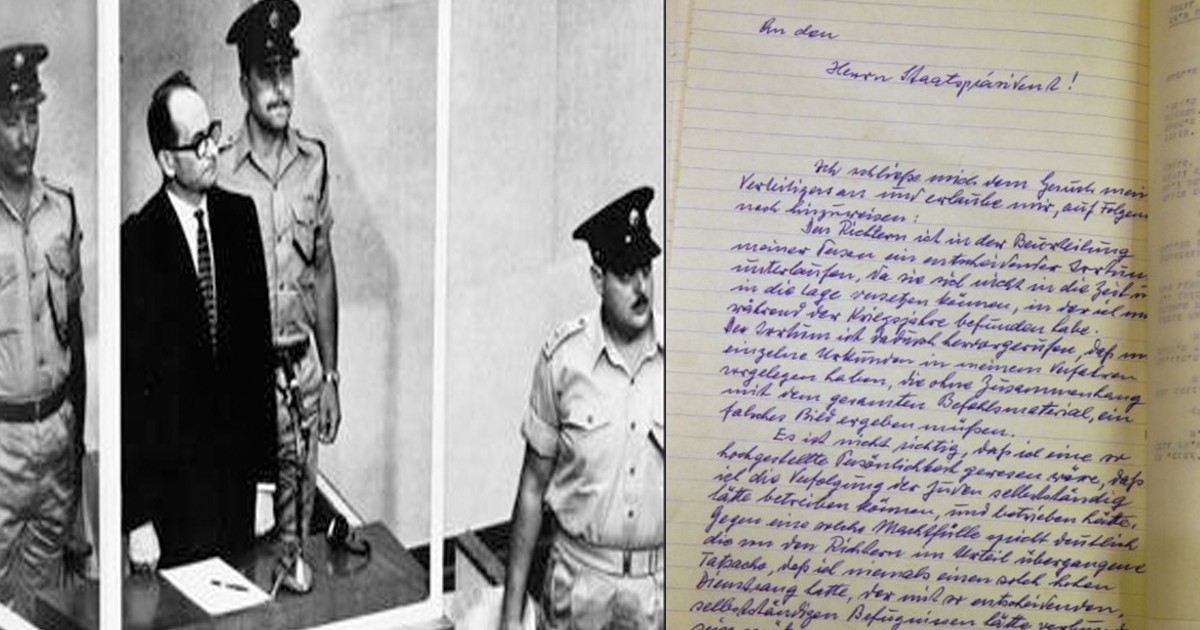 An den
Herrn Staatspräsident!
Ich schließe mich dem Gesuch mein
Verteidigers an und erlaube mir, auf Folgen
noch hinzuweisen:
Den Richtern ist in der Beurteilung
meiner Person ein entscheidender Irrtum
unterlaufen, da sie sich nicht in die Zeit u
in die Lage versetzen können, in der ich m
während der Kriegsjahre befunden habe.
Der Irrtum ist dadurch hervorgerufen, daß m
einzelne Urkunden in meinem Verfahren
vorgelegen haben, die ohne Zusammenhang
mit dem gesamten Befehlsmaterial, ein
falsches Bild ergeben müßen.
Es ist nicht richtig, daß ich eine so
hochgestellte Persönlichkeit gewesen wäre, daß
ich die Verfolgung der Juden selbstständig
hätte betreiben können, und betrieben hätte.
Gegen eine solche Machtfülle spricht deutlich
die von den Richtern im Urteil übergangene
Tatsache, daß ich niemals einen solch hohen
Dienstrang hatte, der mit so entscheidenden,
selbstständigen Befugnissen hätte verbund